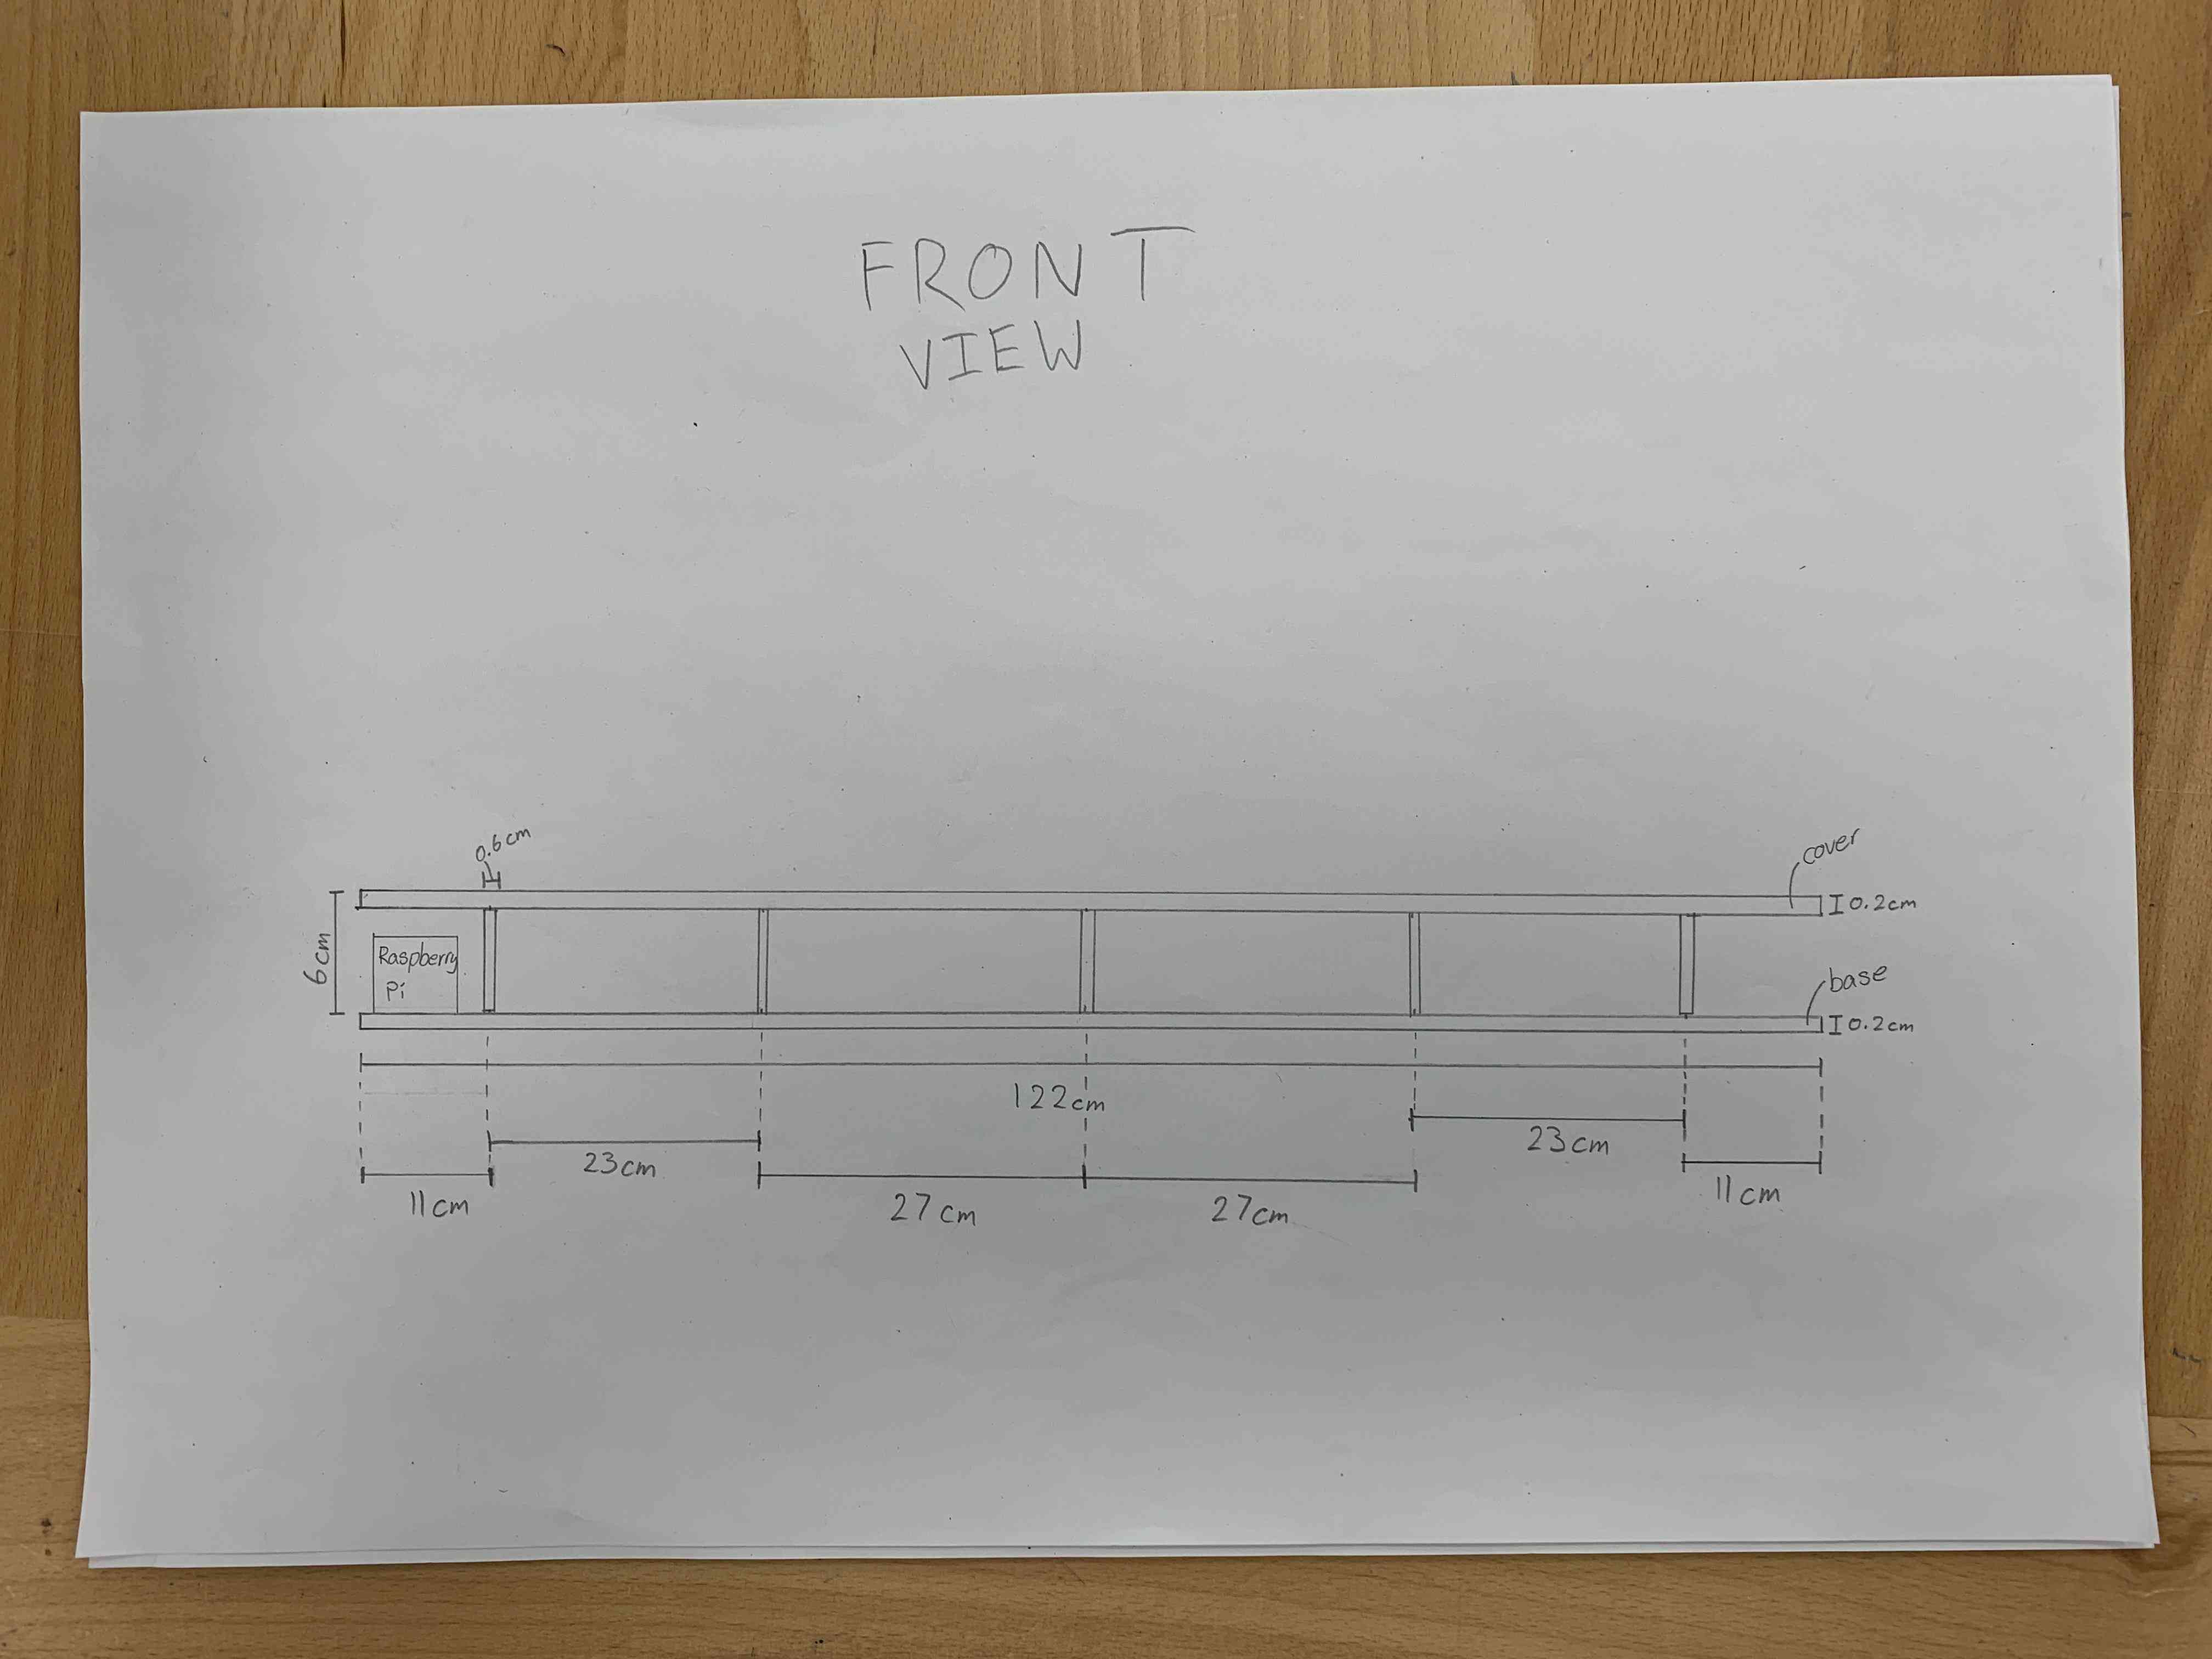 FRONT
VIEW
0.6cm
cover
0.2cm
6cm
Raspberry
Pi
base
0.2cm
122cm
23cm
23cm
11cm
27cm
27cm
11cm